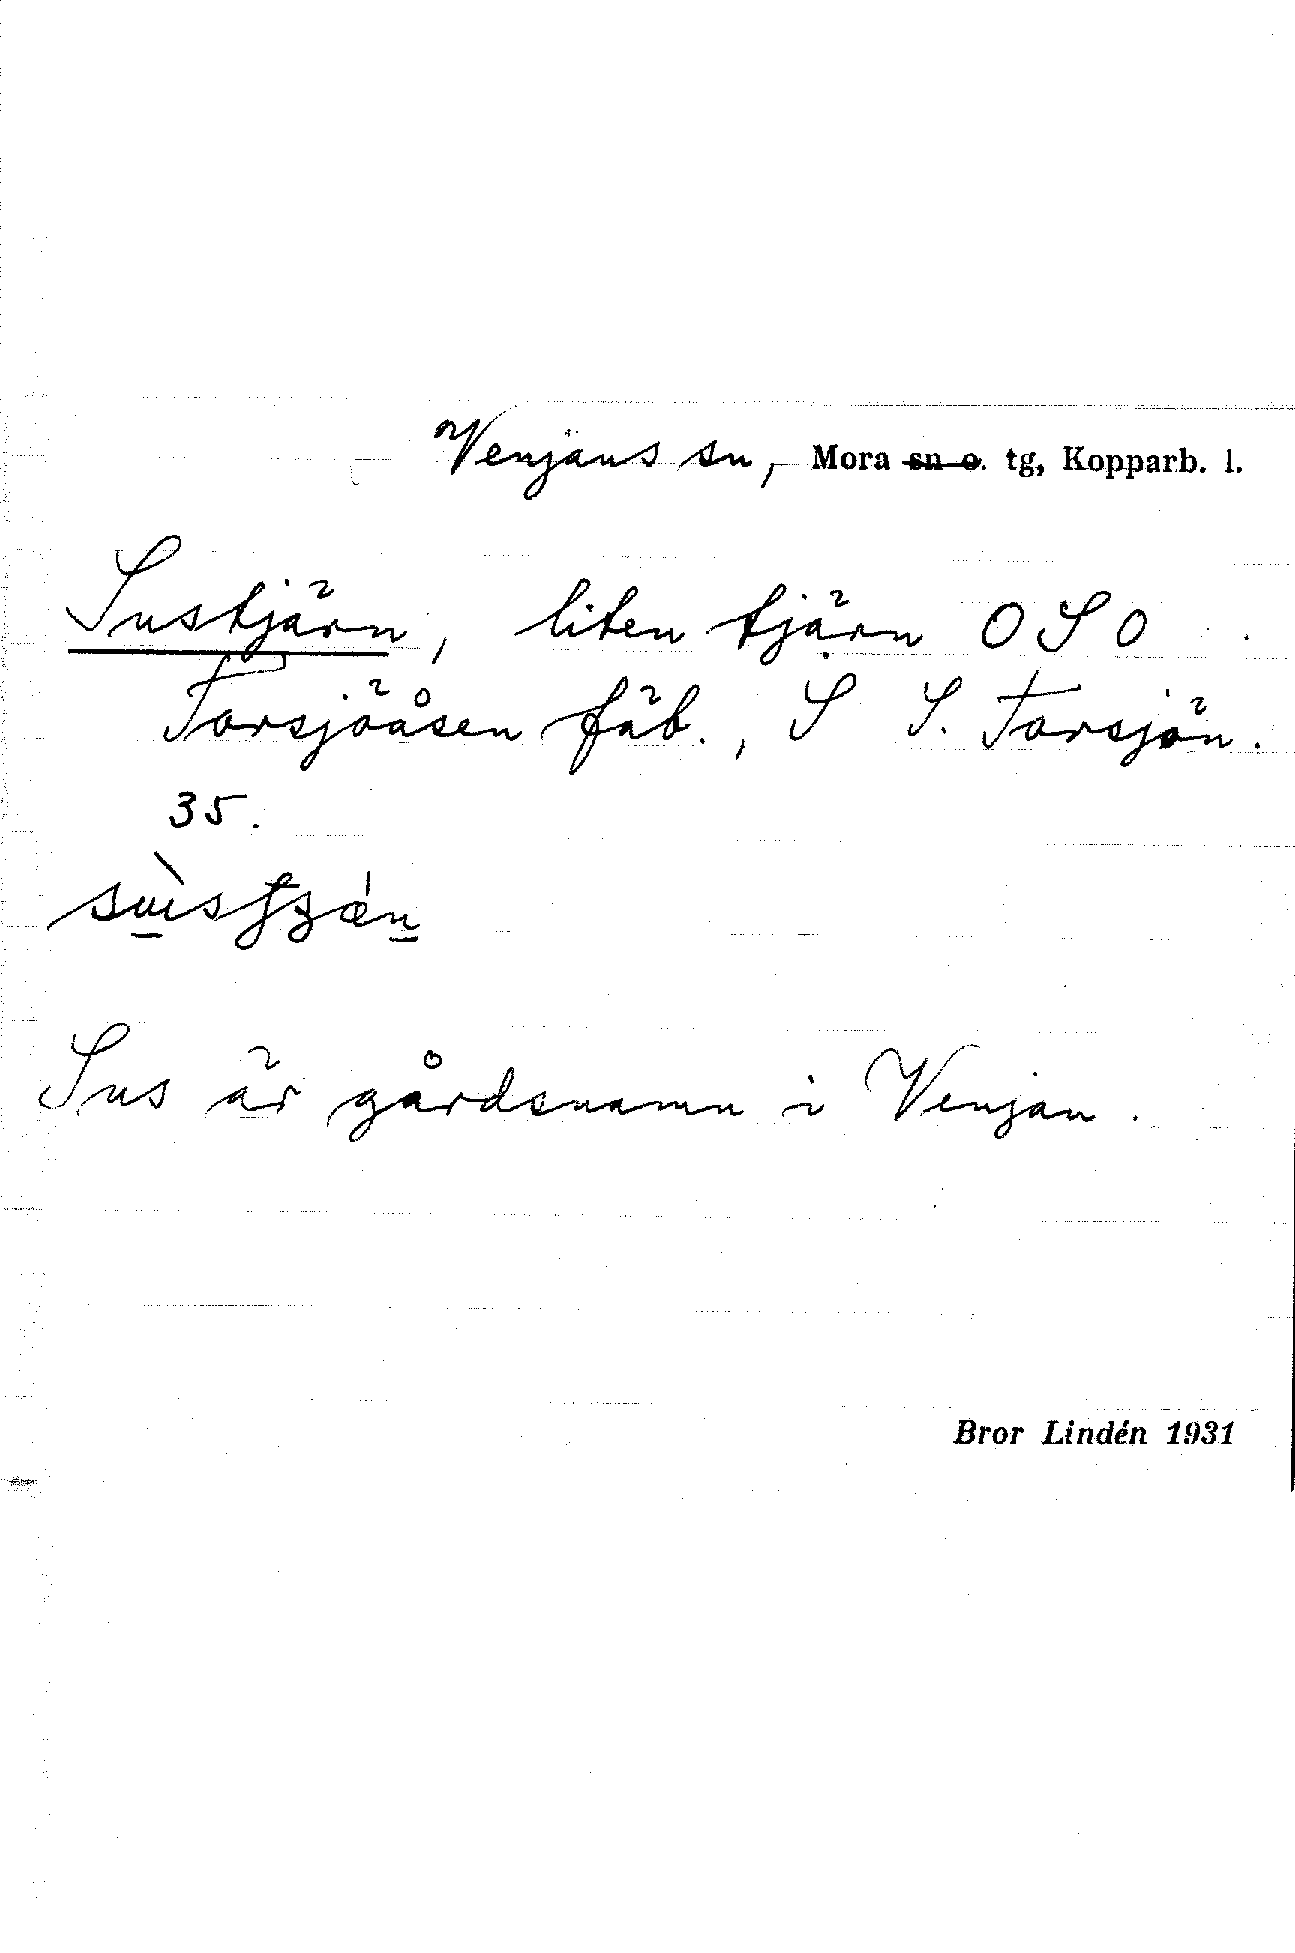 Venjans sn, Mora sn o. tg, Kopparb. l.
Sustjärn, liten tjärn OSO
Torsjöåsen fäb., S S. Torsjön.
35.
Sus är gårdsnamn i Venjan.
Bror Lindén 1931